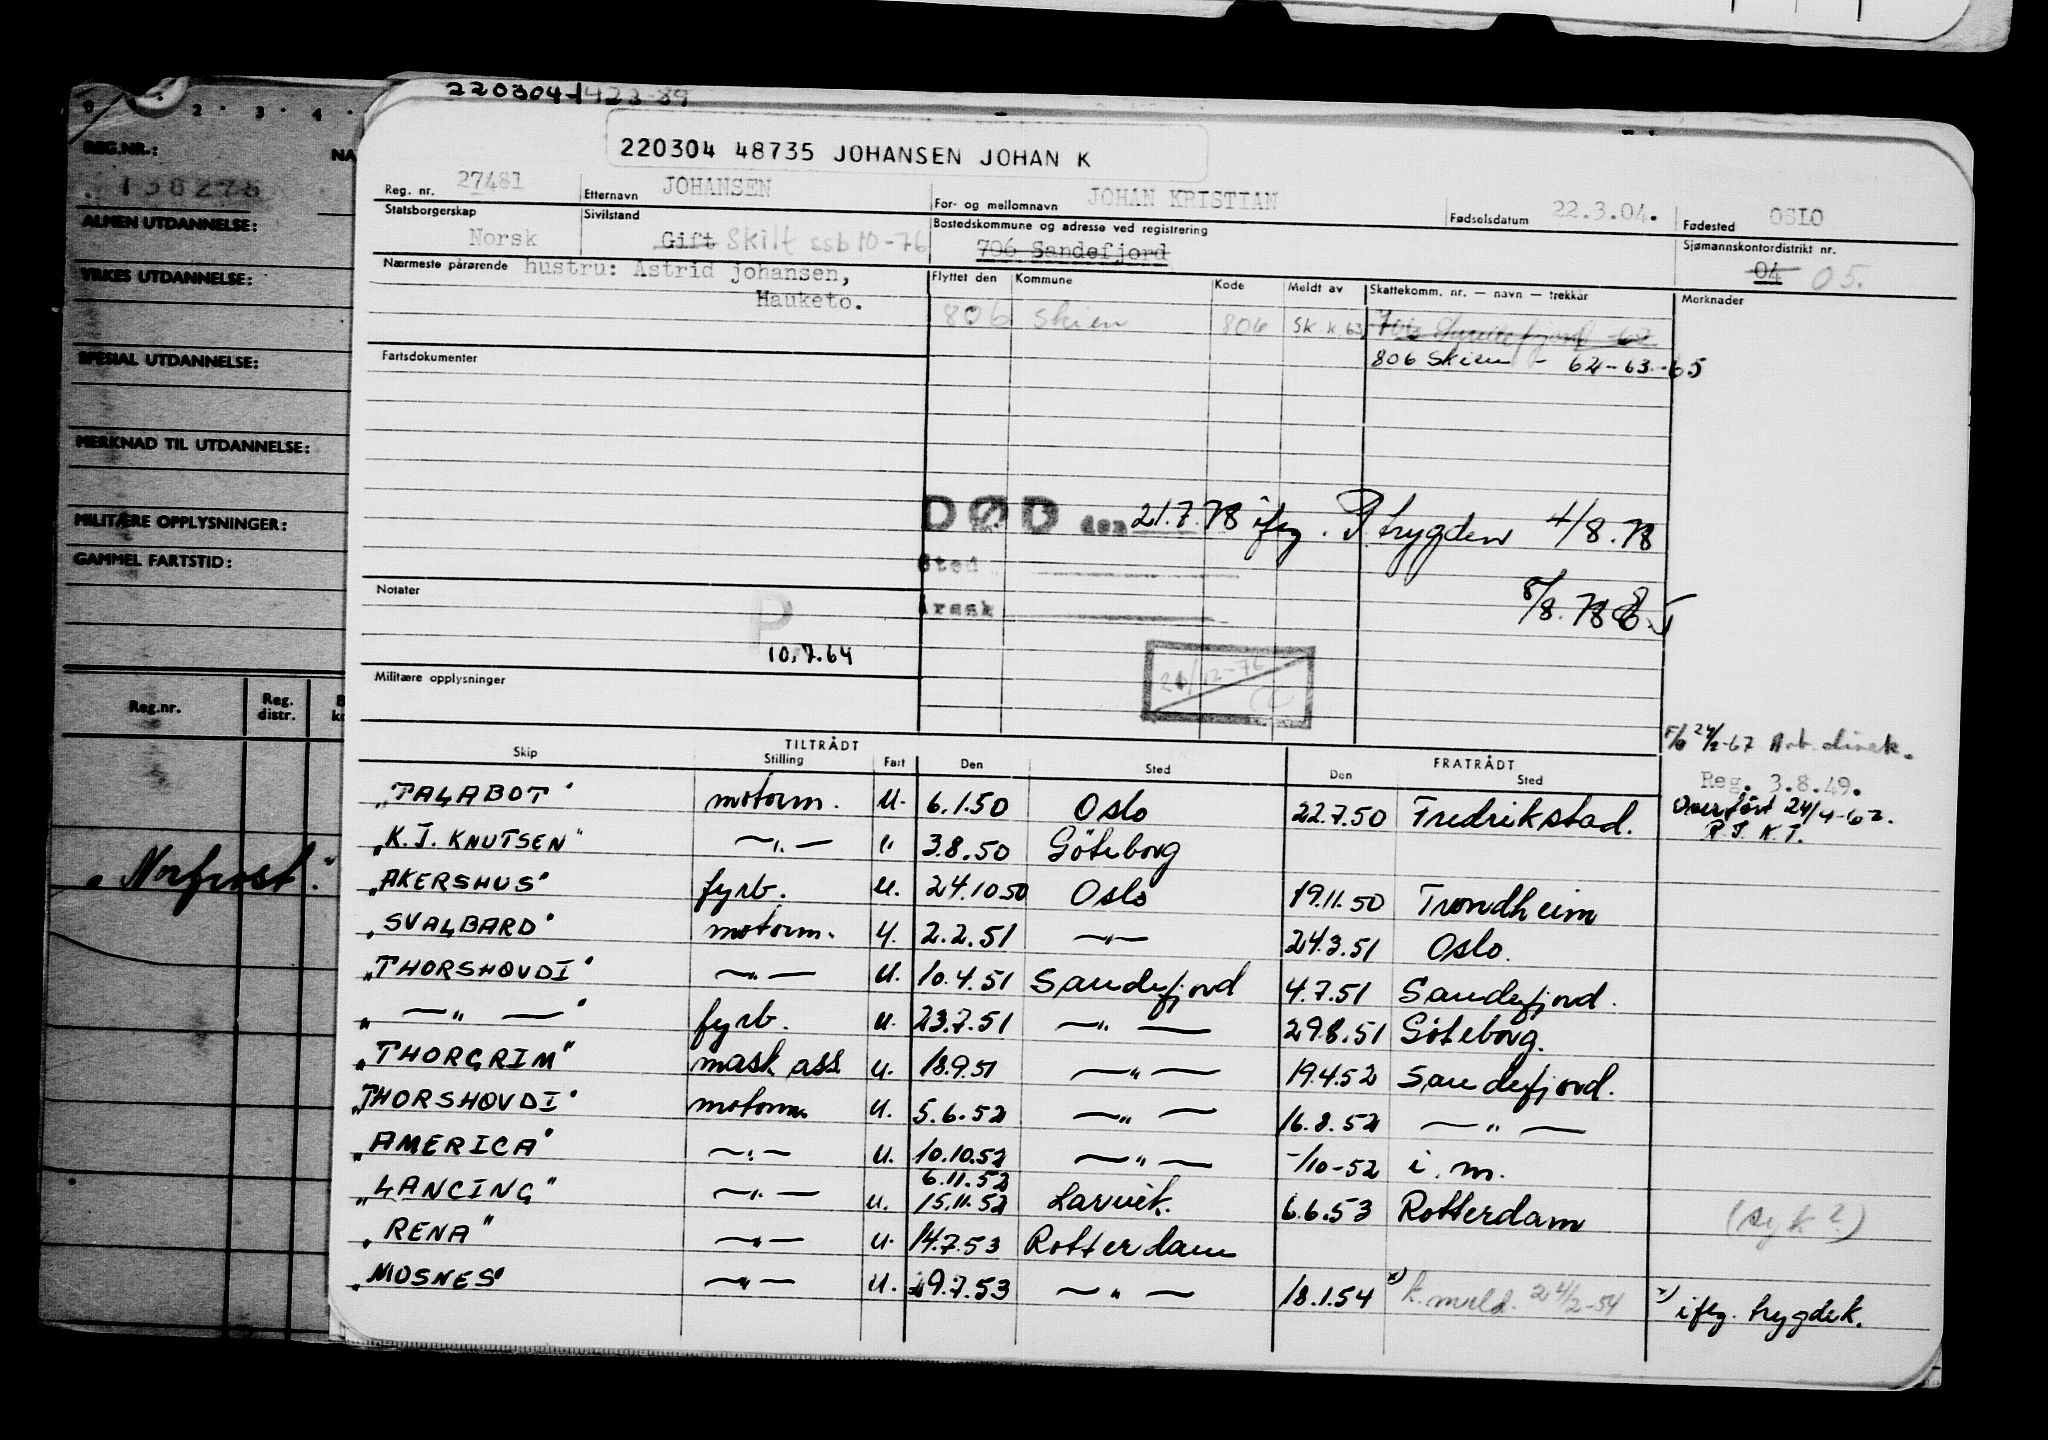 220304-423-89
220304 48735 JOHANSEN JOHAN K
Reg. nr. 27481 Etternavn JOHANSEN For- og mellomnavn JOHAN KRISTIAN Fødselsdatum 22.3.04. Fødested OSLO
Statsborgerskap Norsk Sivilstand Gift Skilt ssb 10-76 Bostedskommune og adresse ved registrering 706 Sandefjord Sjømannskontordistrikt nr. 04 05.
Nærmeste pårørende hustru: Astrid johansen,
Hauketo.
Flyttet den Kommune Kode Meldt av Skattekomm. nr. — navn — trekkår Merknader
806 Skien 806 SK. K. 63
806 Skien - 62-63-65
Fartsdokumenter
DØD den 21.7.78 ifg. P.trygden 4/8.78
Sted
Årsak
8/8.78
Notater
P
10.7.64
Militære opplysninger
F/b 24/2-67 Arb. direk.
Reg. 3.8.49.
Overført 24/4-62.
TILTRÅDT FRATRÅDT
Skip Stilling Fart Den Sted Den Sted
"TALABOT" motorm. U. 6.1.50 Oslo 22.7.50 Fredrikstad.
"K.J. KNUTSEN" —"— " 3.8.50 Göteborg
"AKERSHUS" fyrb. U. 24.10.50 Oslo 19.11.50 Trondheim
"SVALBARD" motorm. U. 2.2.51 —"— 24.3.51 Oslo.
"THORSHØVDI" —"— U. 10.4.51 Sandefjord 4.7.51 Sandefjord.
" —"— " fyrb. U. 23.7.51 —"— 29.8.51 Göteborg.
"THORGRIM" mask ass. U. 18.9.51 —"— 19.4.52 Sandefjord.
"THORSHØVDI" motorm U. 5.6.52 —"— 16.8.52 —"—
"AMERICA" —"— U. 10.10.52 —"— -/10-52 i.m.
6.11.52
"LANCING" —"— U. 15.11.52 Larvik. 6.6.53 Rotterdam (syk?)
"RENA" —"— U. 14.7.53 Rotterdam
"MOSNES" —"— U. 29.7.53 —"— 18.1.54 x) k.meld. 24/2-54 x) ifg. trygdek.
0 2 3 4
REG.NR.: NA
138278
ALMEN UTDANNELSE:
YRKES UTDANNELSE:
SPESIAL UTDANNELSE:
MERKNAD TIL UTDANNELSE:
MILITÆRE OPPLYSNINGER:
GAMMEL FARTSTID:
Reg.nr. Reg. distr.
"Norfrost."